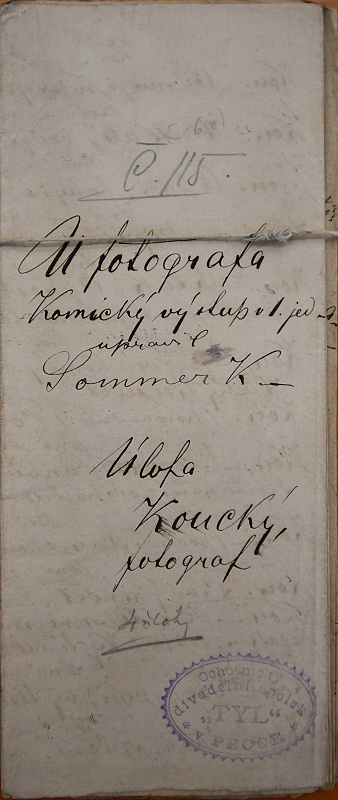 Č. 115.
U fotografa
Komický výstup v 1. jed.
upravil
Sommer K.
Úloha
Koucký,
fotograf
4 úlohy
Ochotnický
divadelní spolek
"TYL"